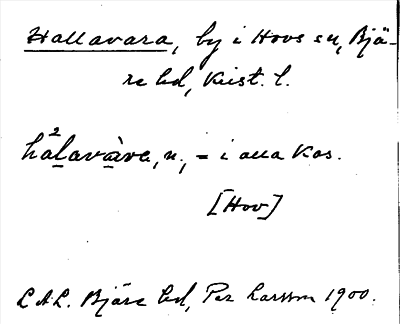 Hallavara, by i Hovs sn, Bjä-
re hd, Krist. l.
ha²lavàra, n., = i alla kas.
[Hov]
LAL. Bjäre hd, Per Larsson 1900.